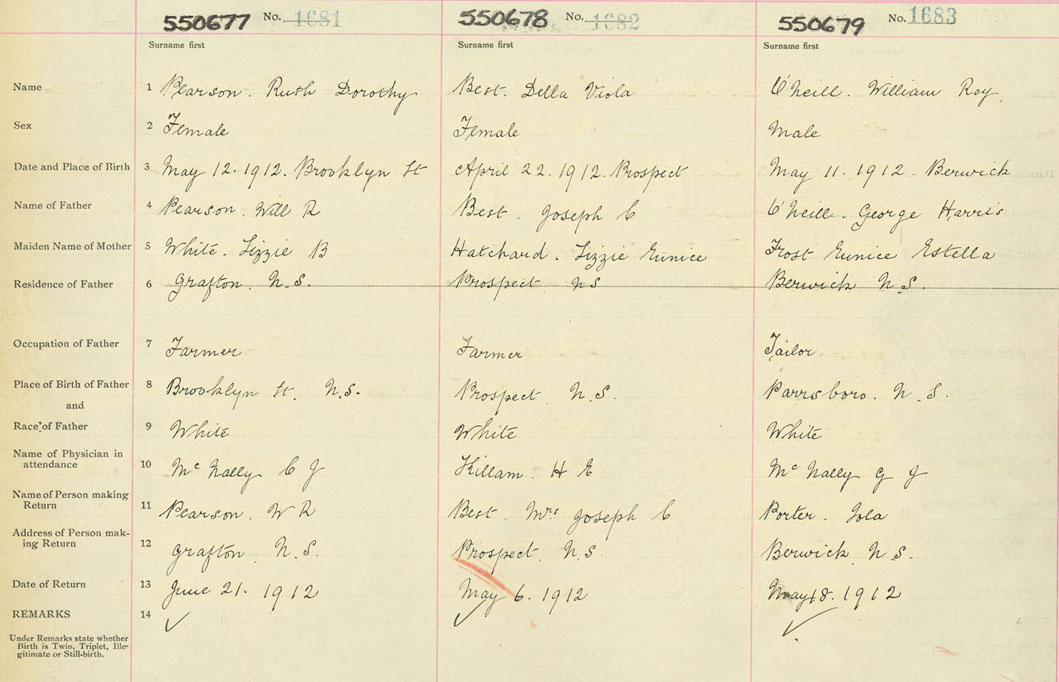 550677 No. 1681 550678 No. 1682 550679 No. 1683
Surname first Surname first Surname first
Name 1 Pearson. Ruth Dorothy Best. Della Viola O'Neill. William Roy.
Sex 2 Female Female Male
Date and Place of Birth 3 May 12. 1912. Brooklyn St April 22. 1912. Prospect May 11. 1912. Berwick
Name of Father 4 Pearson. Will R Best. Joseph C O'Neill. George Harris
Maiden Name of Mother 5 White. Lizzie B Hatchard. Lizzie Eunice Frost Eunice Estella
Residence of Father 6 Grafton. N.S. Prospect N S Berwick N.S.
Occupation of Father 7 Farmer Farmer Tailor
Place of Birth of Father 8 Brooklyn St. N.S. Prospect N.S. Parrsboro. N.S.
and
Race of Father 9 White White White
Name of Physician in
attendance 10 Mc Nally C J Killam H E Mc Nally G J
Name of Person making
Return 11 Pearson. W R Best. Mrs Joseph C Porter. Iola
Address of Person mak-
ing Return 12 Grafton N.S. Prospect N.S. Berwick N.S.
Date of Return 13 June 21. 1912 May 6. 1912 May 18. 1912
REMARKS 14
Under Remarks state whether
Birth is Twin, Triplet, Ille-
gitimate or Still-birth.